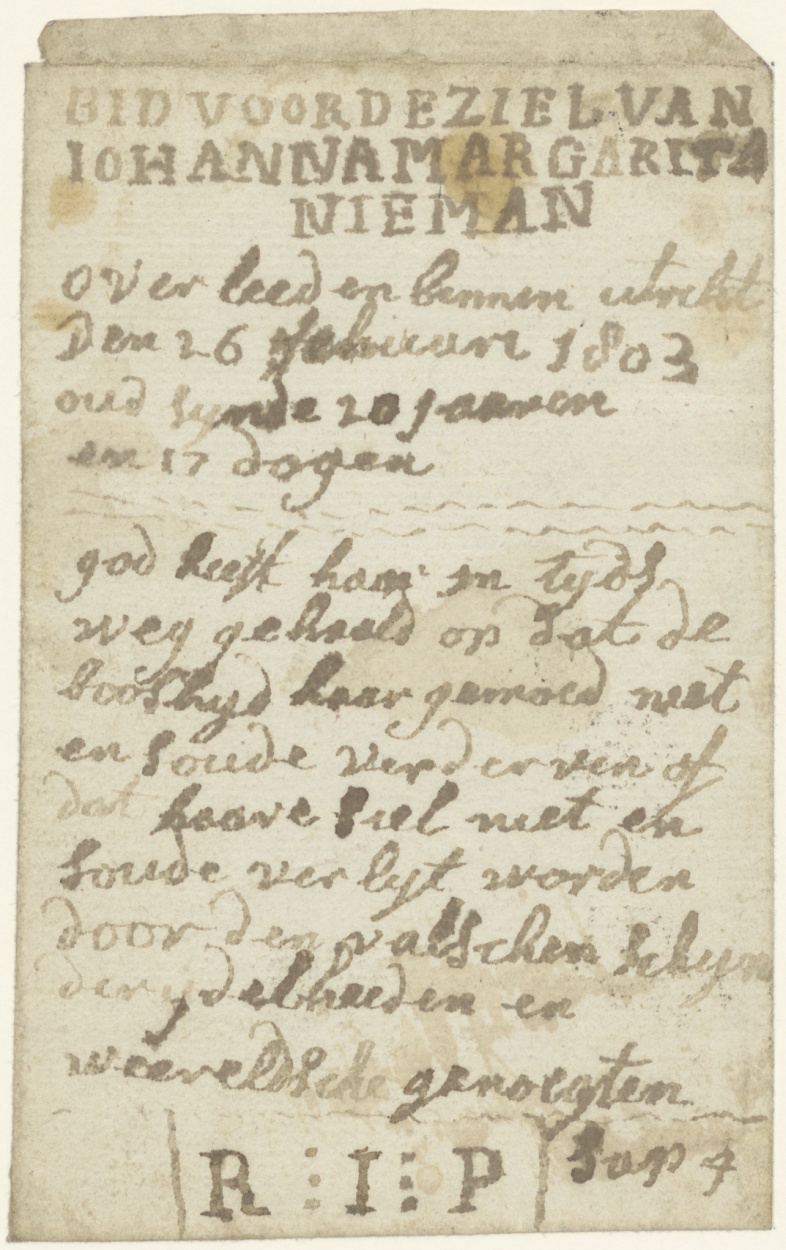 BID VOOR DE ZIEL VAN
IOHANNA MARGARITA
NIEMAN
over leeden binnen utrecht
Den 26 febuuari 1803
oud synde 20 jaaren
en 17 dagen
god heeft haar in tyds
weg gehaald op dat de
booshyd haar gemoed niet
en soude verderven of
dat haare siel niet en
soude ver lyt worden
door den valschen schyn
der ydelheeden en
weereldsche genoegten
R : I : P
Sap 4